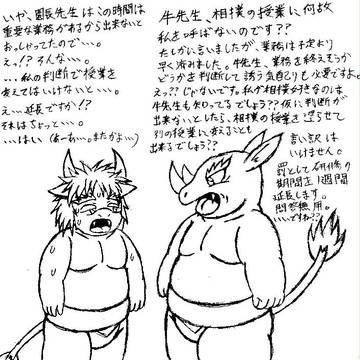 牛先生、相撲の授業に何故
私を呼ばないのです??
たしかに言いましたが、業務は予定より
早く済みました。牛先生、業務を終えそうか
どうかを判断して誘う気配りも必要ですよ。
えっ??じゃないです。私が相撲好きなのは
牛先生も知ってるでしょう??仮に判断が
出来ないとしたら、相撲の授業を遅らせて
別の授業に変えることも
出来るでしょう??
言い訳は
いけません。
罰として研修の
期間を1週間
延長します。
問答無用。
いいですね??
いや、園長先生はこの時間は
重要な業務があるから出来ないと
おっしゃってたので…。
えっ!?そんな…。
…私の判断で授業を
変えてはいけないと…。
え…延長ですか!?
それはちょっと…。
…はい(あーあ…。またかよ…)